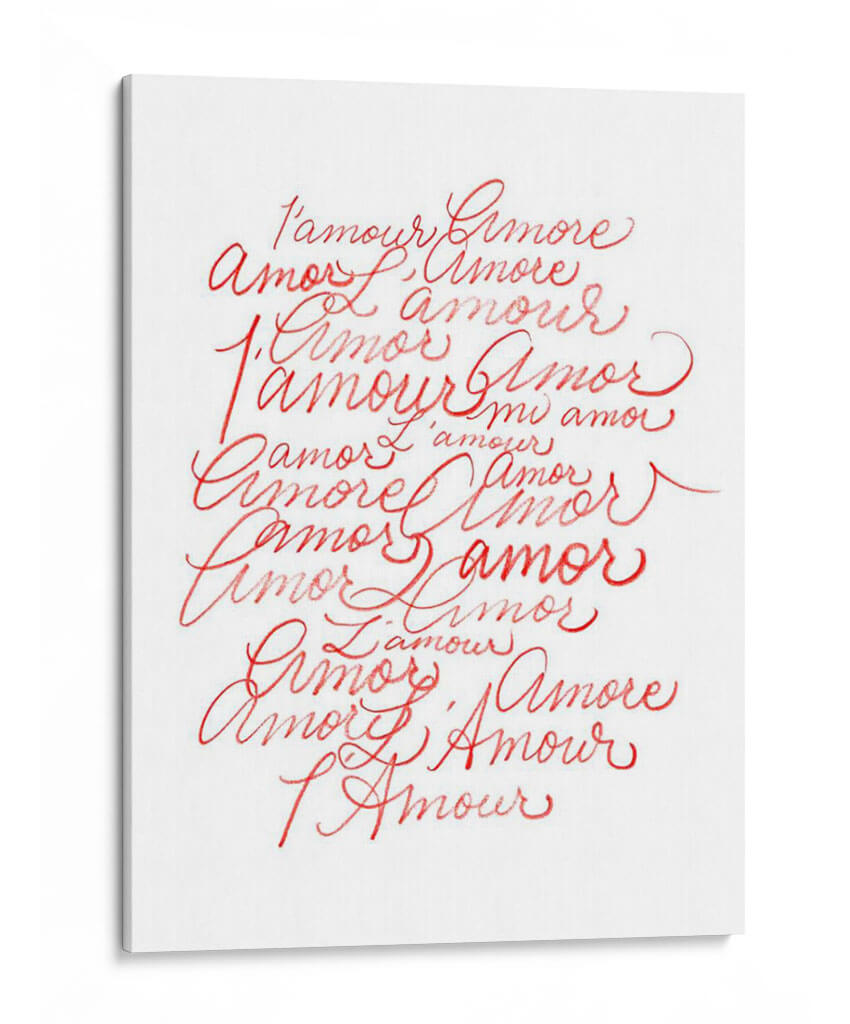 l'amour Amore
amor L'Amore
L'amour
Amor
l'amour Amor
mi amor
L'amour
amor Amor
Amore Amor
amor amor
Amor Amor
L'amour
Amor Amore
Amore L'Amour
l'Amour